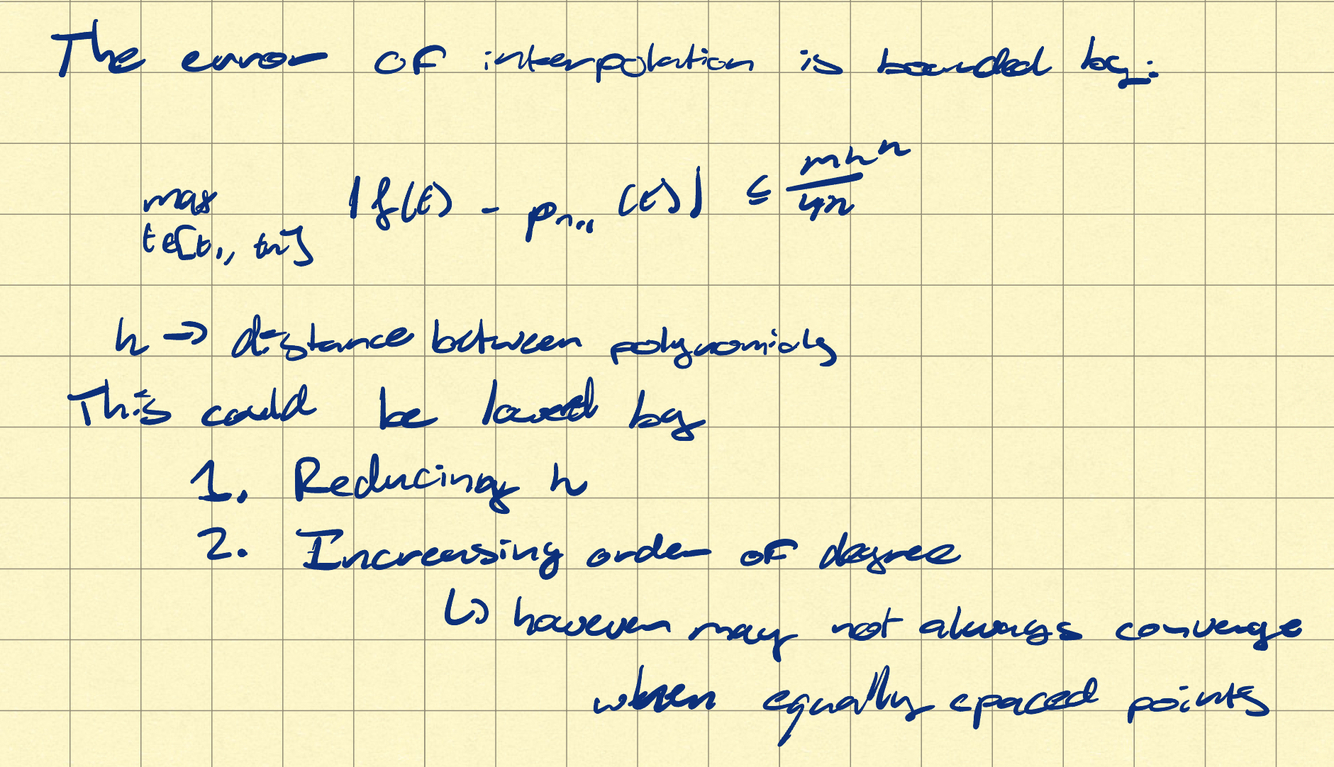 The error of interpolation is bounded by:
max |f(t) - pₙ₋₁ (t)| ≤ mhⁿ/4n
t∈[t₁, tn]
h → distance between polynomials
This could be lowered by
1. Reducing h
2. Increasing order of degree
↳ however may not always converge
when equally spaced points